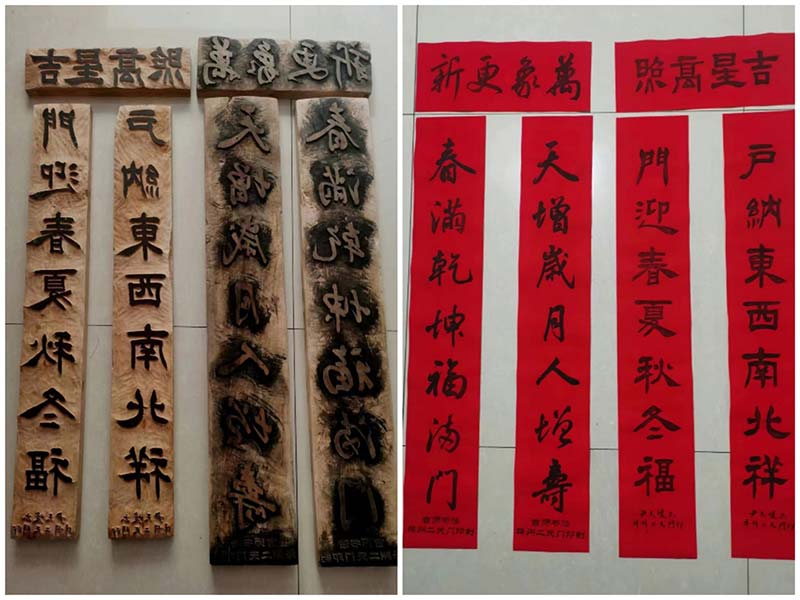 吉星髙照
萬象更新
門迎春夏秋冬福
户納東西南北祥
天增歲月人增壽
春滿乾坤福满门
萬象更新
吉星髙照
春滿乾坤福满门
天增歲月人增壽
門迎春夏秋冬福
户納東西南北祥